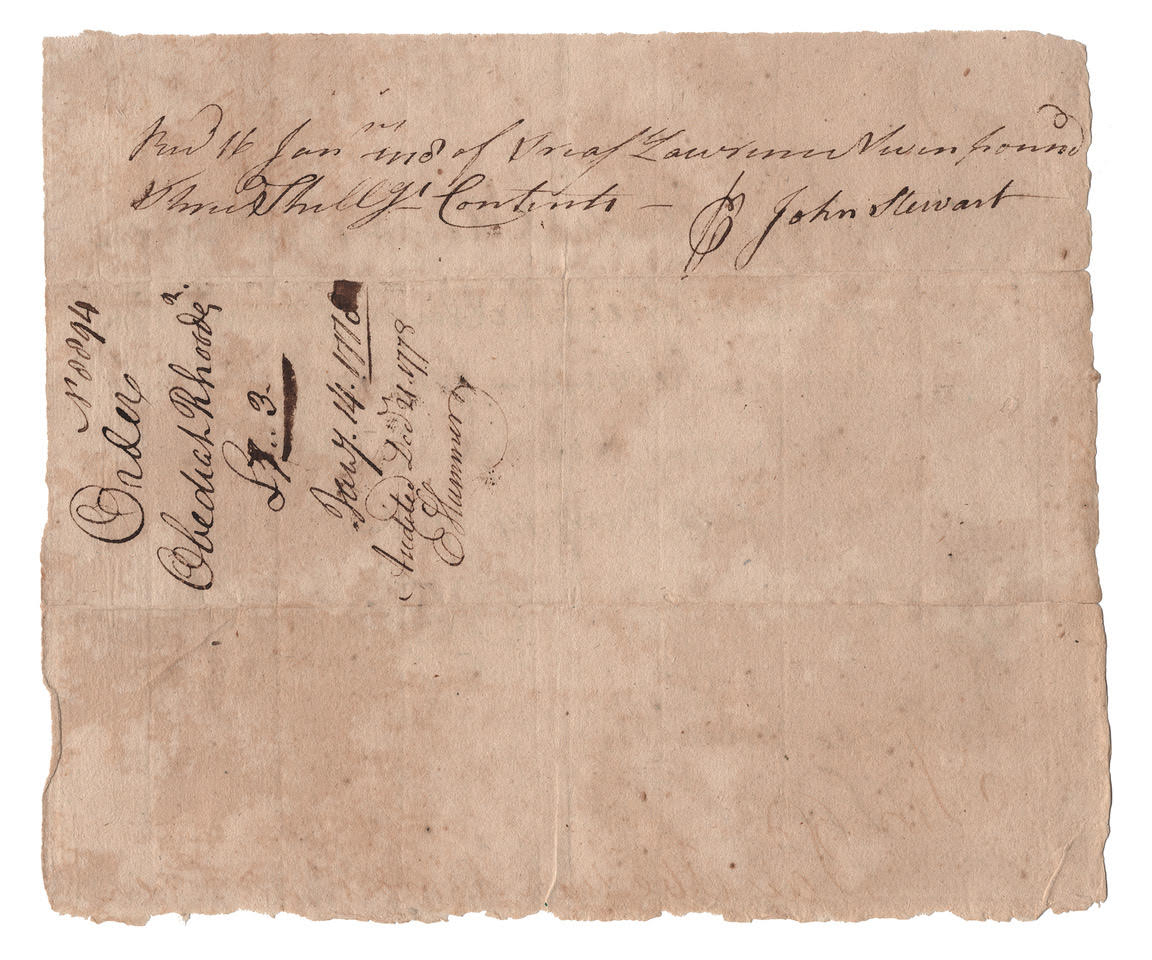 Recd 16 Janry 1778 of Treasr Lawrence Seven pound
Three Shillgs Contents — ℘ John Stewart
No 894
Order
Obediah Rhoods
£7..3.
Jany. 14. 1778
Audited Decr 21. 1778